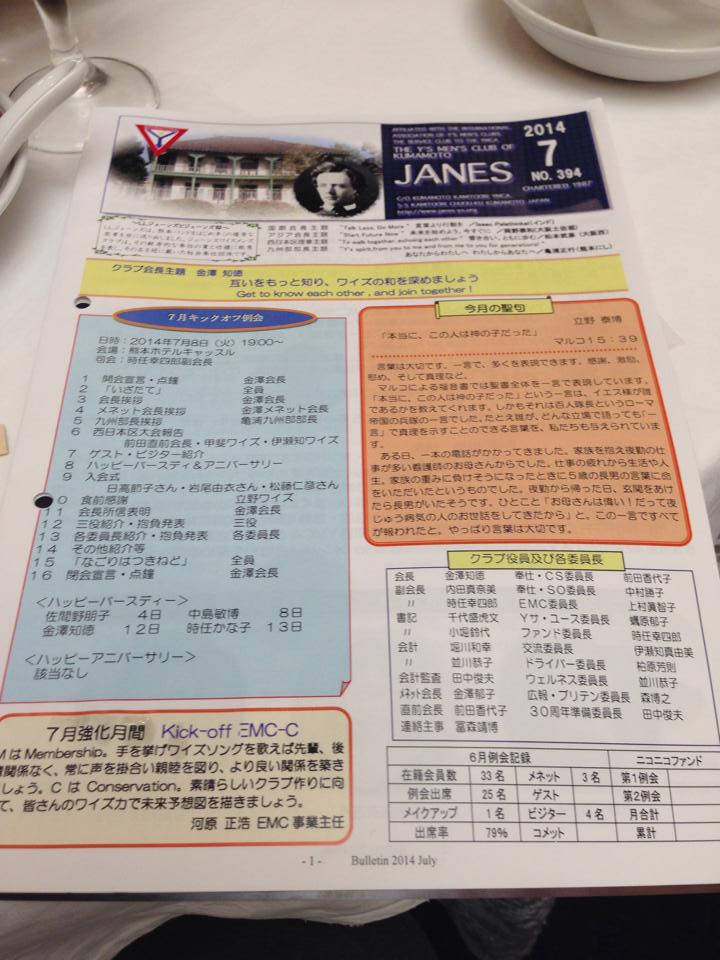 AFFILIATED WITH THE INTERNATIONAL
ASSOCIATION OF Y'S MEN'S CLUBS
THE SERVICE CLUB TO THE YMCA
THE Y'S MEN'S CLUB OF
KUMAMOTO
JANES
2014
7
NO. 394
CHARTERED 1987
国際会長主題 "Talk Less, Do More"
アジア会長主題 "Start Future Now"
西日本区理事主題
九州部部長主題
あなたからわたしへ わたしからあなたへ
クラブ会長主題 金澤 知徳
互いをもっと知り、ワイズの和を深めましょう
Get to know each other, and join together!
7月キックオフ例会
日時：2014年7月8日（火）19:00～
会場：熊本ホテルキャッスル
司会：時任幸四郎副会長
1 開会宣言・点鐘 金澤会長
2 「いざたて」 全員
3 会長挨拶 金澤会長
4 メネット会長挨拶 金澤メネット会長
5 九州部長挨拶 亀浦九州部部長
6 西日本区大会報告
前田直前会長・甲斐ワイズ・伊瀬知ワイズ
7 ゲスト・ビジター紹介
8 ハッピーバースディ＆アニバーサリー
9 入会式
日高節子さん・岩尾由衣さん・松藤仁彦さん
0 食前感謝 立野ワイズ
11 会長所信表明 金澤会長
12 三役紹介・抱負発表 三役
13 各委員長紹介・抱負発表 各委員長
14 その他紹介等
15 「なごりはつきねど」 全員
16 閉会宣言・点鐘 金澤会長
＜ハッピーバースディー＞
佐間野朋子 4日 中島敏博 8日
金澤知徳 12日 時任かな子 13日
＜ハッピーアニバーサリー＞
該当なし
今月の聖句
立野 泰博
「本当に、この人は神の子だった」
マルコ15：39
言葉は大切です。一言で、多くを表現できます。感謝、激励、
慰め、そして真理など。
マルコによる福音書では聖書全体を一言で表現しています。
「本当に、この人は神の子だった」という一言は、イエス様が誰
であるかを教えてくれます。しかもそれは百人隊長というローマ
帝国の兵隊の一言でした。たとえ誰が、どんな立場で語っても「一
言」で真理を示すことのできる言葉を、私たちも与えられていま
す。
ある日、一本の電話がかかってきました。家族を抱え夜勤の仕
事が多い看護師のお母さんからでした。仕事の疲れから生活や人
生、家族の重みに負けそうになったときに5歳の長男の言葉に命
をいただいたというものでした。夜勤から帰った日、玄関をあけ
たら長男がいたそうです。ひとこと「お母さんは偉い！だって夜
じゅう病気の人のお世話をしてきたから」と。この一言ですべて
が報われたと。やっぱり言葉は大切です。
クラブ役員及び各委員長
会長 金澤知徳 奉仕・CS委員長 前田香代子
副会長 内田真奈美 奉仕・SO委員長 中村勝子
〃 時任幸四郎 EMC委員長 上村眞智子
書記 千代盛虎文 Yサ・ユース委員長 蠣原郁子
〃 小堀鈴代 ファンド委員長 時任幸四郎
会計 堀川和幸 交流委員長 伊瀬知真由美
〃 並川恭子 ドライバー委員長 柏原芳則
会計監査 田中俊夫 ウェルネス委員長 並川恭子
メネット会長 金澤郁子 広報・ブリテン委員長 森博之
直前会長 前田香代子 30周年準備委員長 田中俊夫
連絡主事 冨森靖博
7月強化月間 Kick-off EMC-C
MはMembership。手を挙げワイズソングを歌えば先輩、後
関係なく、常に声を掛合い親睦を図り、より良い関係を築き
しょう。CはConservation。素晴らしいクラブ作りに向
て、皆さんのワイズ力で未来予想図を描きましょう。
河原 正浩 EMC事業主任
6月例会記録 ニコニコファンド
在籍会員数 33名 メネット 3名 第1例会
例会出席 25名 ゲスト 第2例会
メイクアップ 1名 ビジター 4名 月合計
出席率 79% コメット 累計
- 1 - Bulletin 2014 July